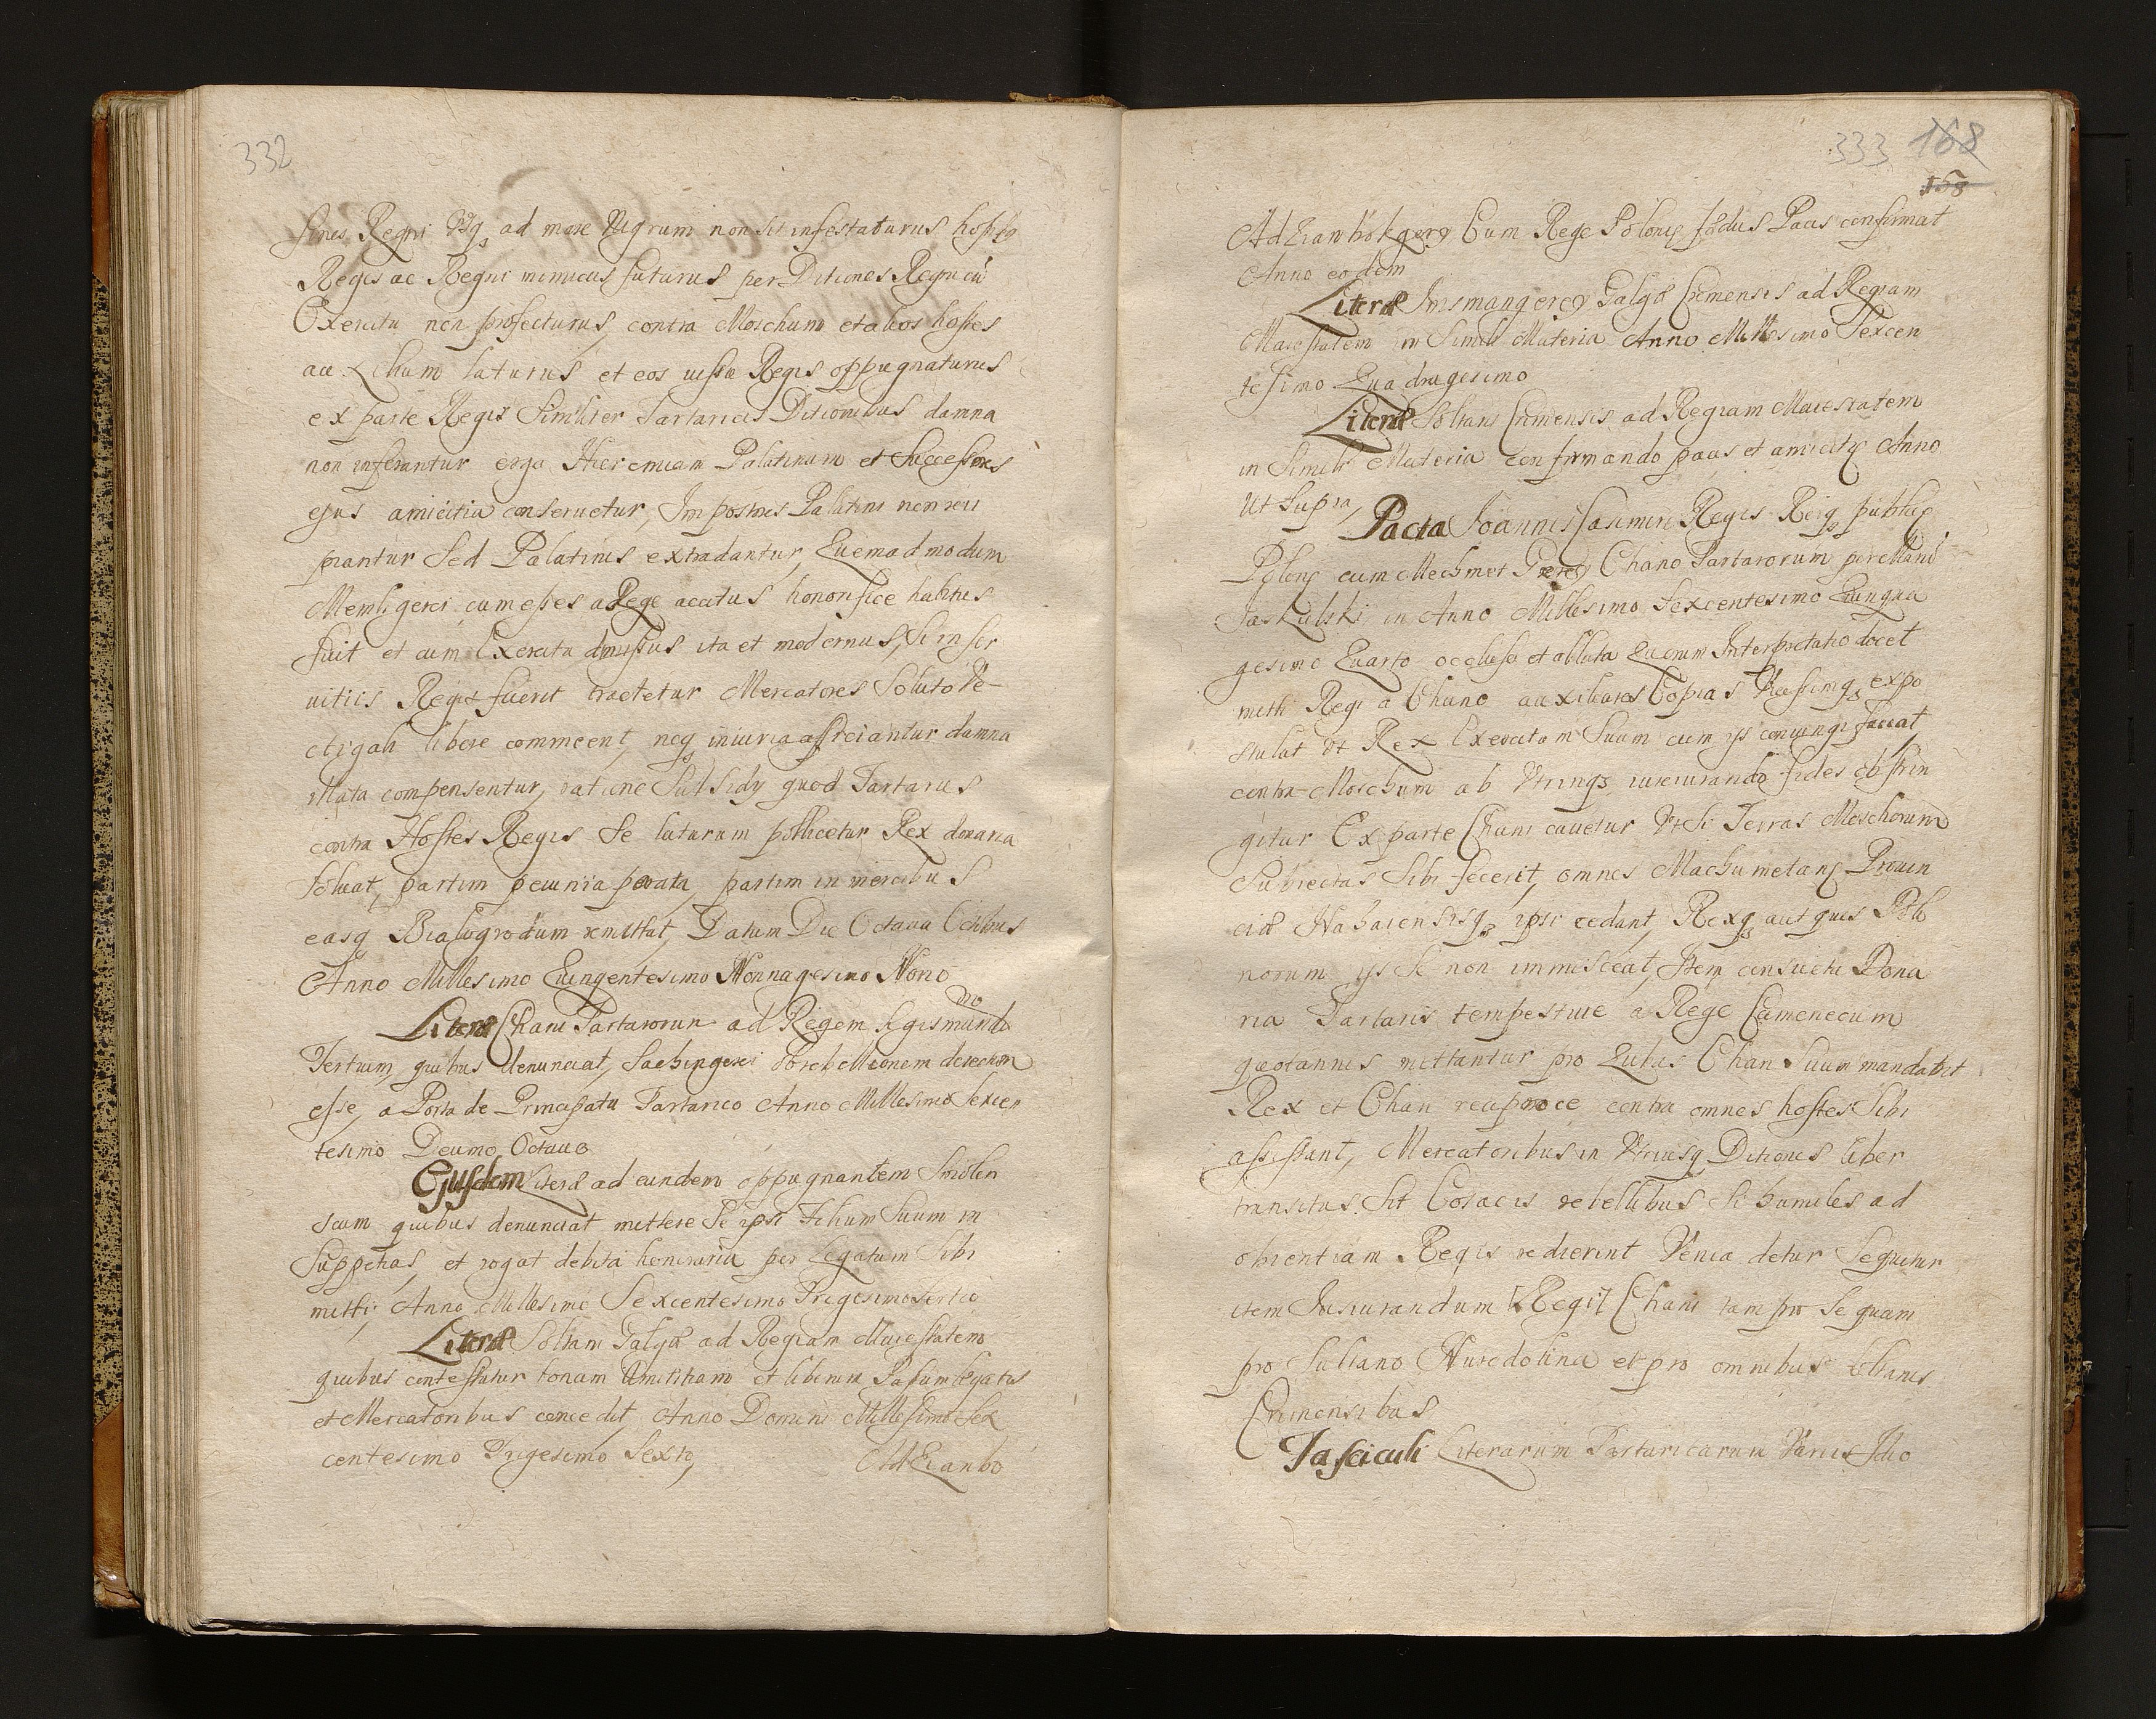 332
fines Regni Usq ad mare Nigrum non sit infestaturus hostis
Regis ac Regni inimicus futurus per Ditiones Regni cū
Exercitu non profecturus, contra Moschum et alios hostes
auxilium laturus et eos iussu Regis oppugnaturus
ex parte Regis Similiter Tartaricis Ditionibus damna
non inferantur erga Hieremiam Palatinum et Successores
ejus amicitia conseruetur, Impostores Palatini non reci
piantur Sed Palatinis extradantur, Quemadmodum
Membligerei cum esses a Rege accitus honorifice habitus
fuit et cum Exercitu dimissus ita et modernus, Si in ser
uitiis Regis fuerit tractetur Mercatores Soluto Ve-
ctigali libere commeent, neq iniuria afficiantur damna
illata compensentur, ratione Subsidy quod Tartarus
contra Hostes Regis Se laturum pollicetur Rex donaria
Soluat, partim pecunia parata, partim in mercibus
easq Bialogrodum remittat, Datum Die Octaua Octobris
Anno Millesimo Quingentesimo Nonnagesimo Nono
Literæ Chani Tartarorum ad Regem Sigismundo
Tertium, quibus denunciat, Sachingerei ob rebellionem deiectum
esse, a Porta de Principatu Tartarico Anno Millesimo Sexcen
tesimo Decimo Octauo
Ejusdem Literæ ad eundem oppugnantem Smolen
scum quibus denunciat mittere Se ipsi Filium Suum in
Suppetias, et rogat debita honoraria per Legatum Sibi
mitti, Anno Millesimo Sexcentesimo Trigesimo tertio
Literæ Soltani Galgæ ad Regiam Maiestatem
quibus contestatur bonam Amicitiam et liberum Passum legatis
et Mercatoribus concedit, Anno Domini Millesimo Sex
centesimo Trigesimo Sexto,
AdZianbo
333 168
AdZianbokgerey Cum Rege Polonię fædus Pacis confirmat
Anno eodem
Literæ Inismangerey Galgæ Crimensis ad Regiam
Maiestatem in Simili Materia Anno Millesimo Sexcen
tesimo Quadragesimo
Literæ Soltani Crimensis ad Regiam Maiestatem
in Simili Materia confirmando pacis et amicitię Anno
Ut Supra,
Pacta Joannis Casimiri Regis Reiq publicę
Polonę cum Mechmet Gerey Chano Tartarorum per Mariū
Jaskulski in Anno Millesimo Sexcentesimo Quinqua
gesimo Quarto occlusa et ablata Quorum Interpretatio docet
mitti Regi a Chano auxiliares Copias Vicissimq expo
stulat Ut Rex Exercitum Suum cum ijs coniungi faciat,
contra Moschum ab Utrinq, iureiurando fides obstrin
gitur Ex parte Chani cauetur Ut Si Terras Moschorum
Subiectas Sibi fecerit, omnes Machumetanę Prouin
ciæ Nahaiensisq ipsi cedant, Rexq aut quis Polo
norum ijs Se non immisceat, Item consueta Dona
ria Tartaris tempestiue a Rege Camenecum
quotannis mittantur pro Quibus Chan Suum mandabit
Rex et Chan reciproce contra omnes hostes Sibi
assistant, Mercatoribus in Utriusq Ditiones liber
transitus Sit Cosacis rebellibus Si humiles ad
obientiam Regis redierint Venia detur Sequitur
item Jusiurandum [Regis] Chani tam pro Se quam
pro Sultano Nuredolina et pro omnibus Soltanis
Crimensibus
Fasciculi Literarum Tartaricarum Variis Idio